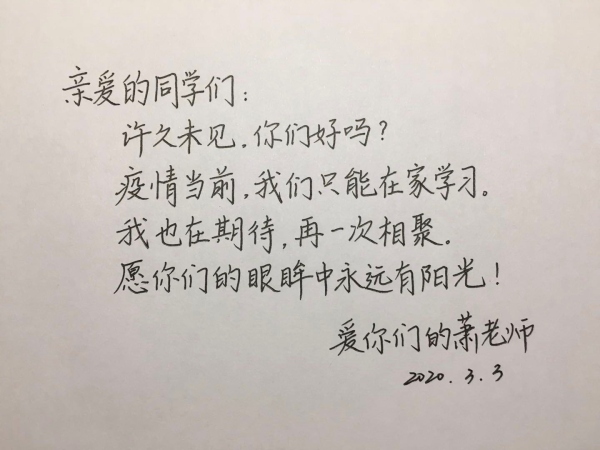 亲爱的同学们：
许久未见，你们好吗？
疫情当前，我们只能在家学习。
我也在期待，再一次相聚。
愿你们的眼眸中永远有阳光！
爱你们的萧老师
2020.3.3